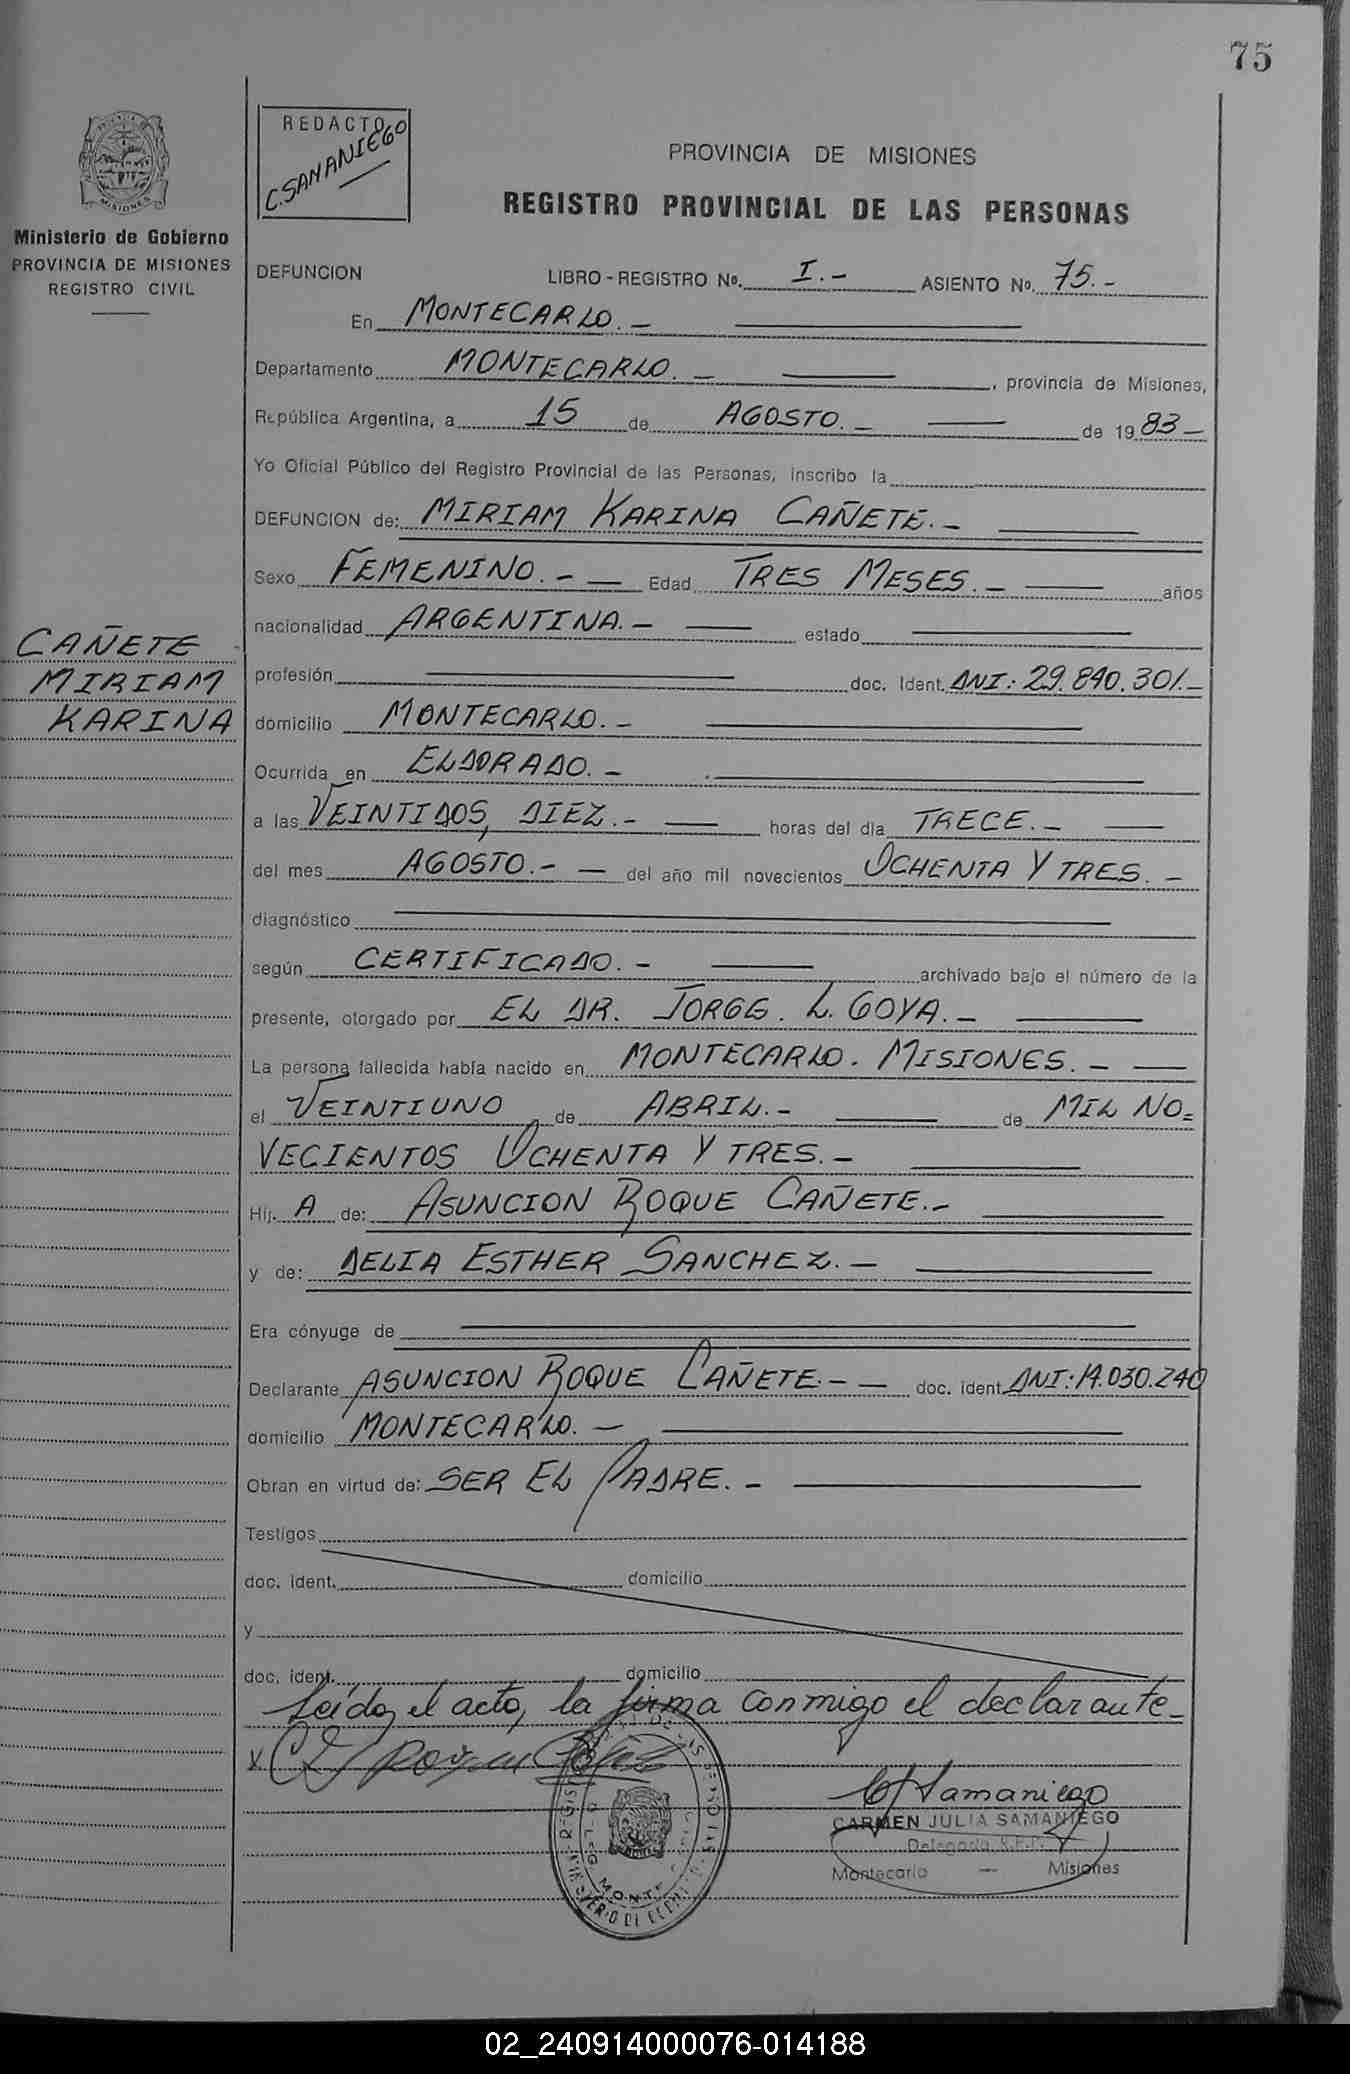 75
REDACTO
C. SAMANIEGO
PROVINCIA DE MISIONES
REGISTRO PROVINCIAL DE LAS PERSONAS
MISIONES
Ministerio de Gobierno
PROVINCIA DE MISIONES
REGISTRO CIVIL
DEFUNCION LIBRO - REGISTRO No. I.- ASIENTO No. 75.-
En MONTECARLO.-
Departamento MONTECARLO.- , provincia de Misiones,
República Argentina, a 15 de AGOSTO.- de 1983-
Yo Oficial Público del Registro Provincial de las Personas, inscribo la
DEFUNCION de: MIRIAM KARINA CAÑETE.-
Sexo FEMENINO.- Edad TRES MESES.- años
nacionalidad ARGENTINA.- estado
CAÑETE
MIRIAM
KARINA
profesión doc. Ident. DNI: 29.840.301.-
domicilio MONTECARLO.-
Ocurrida en ELDORADO.-
a las VEINTIDOS, DIEZ.- horas del día TRECE.-
del mes AGOSTO.- del año mil novecientos OCHENTA Y TRES.-
diagnóstico
según CERTIFICADO.- archivado bajo el número de la
presente, otorgado por EL DR. JORGE. L. GOYA.-
La persona fallecida había nacido en MONTECARLO. MISIONES.-
el VEINTIUNO de ABRIL.- de MIL NO=
VECIENTOS OCHENTA Y TRES.-
Hij. A de: ASUNCION ROQUE CAÑETE.-
y de: DELIA ESTHER SANCHEZ.-
Era cónyuge de
Declarante ASUNCION ROQUE CAÑETE.- doc. ident. DNI: 14.030.240
domicilio MONTECARLO.-
Obran en virtud de: SER EL PADRE.-
Testigos
doc. ident. domicilio
y
doc. ident. domicilio
Leída el acto, la firma conmigo el declarante-
x
CJSamaniego
CARMEN JULIA SAMANIEGO
Delegada R.P.P.
Montecarlo — Misiones
02_240914000076-014188